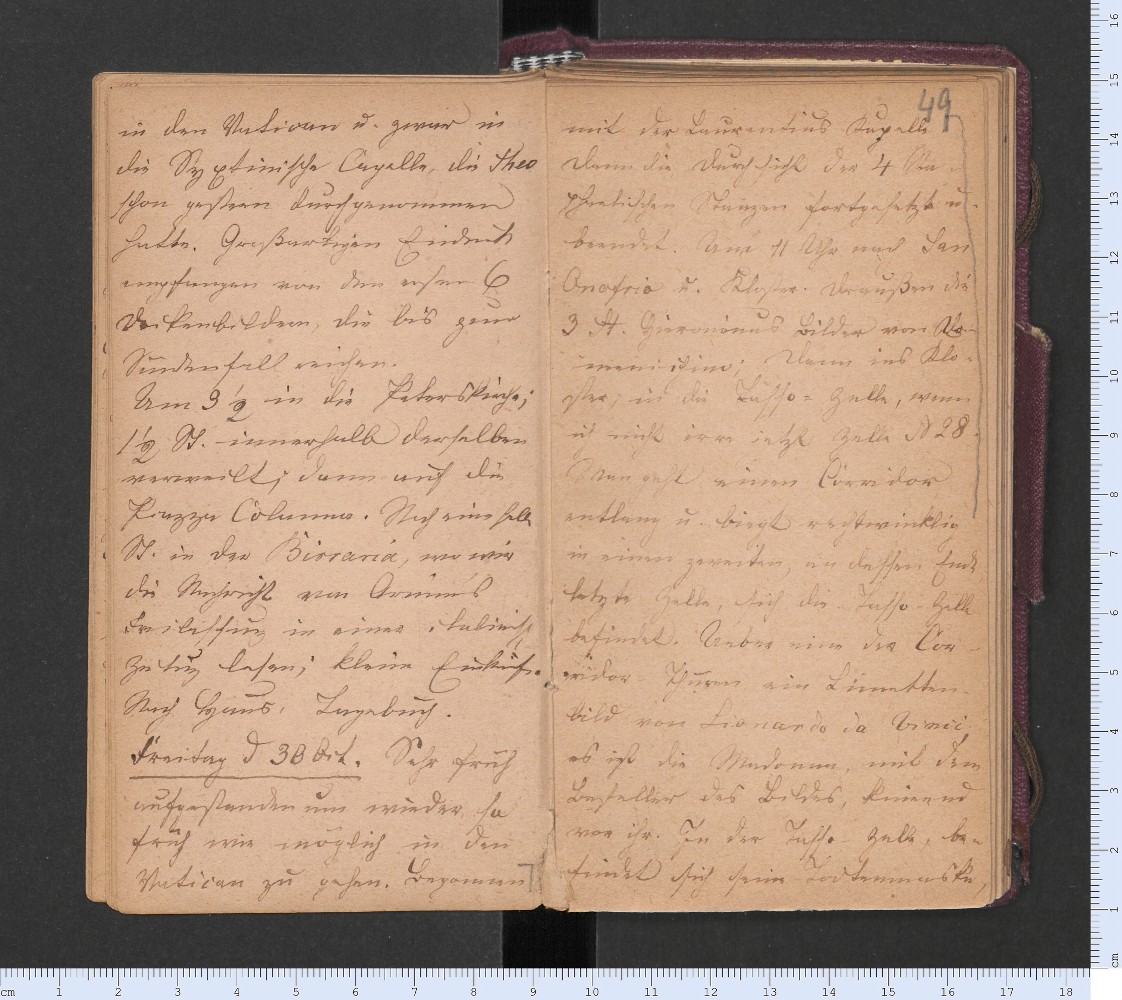 in den Vatican u. zwar in
die Syxtinische Capelle, die Theo
schon gestern durchgenommen
hatte. Großartigen Eindruck
empfangen von den ersten 6
Deckenbildern, die bis zum
Sündenfall reichen.
Um 3 1/2 in die Peterskirche;
1 1/2 St. innerhalb derselben
verweilt; dann auf die
Piazza Colonna. Noch eine halbe
St. in der Birraria, wo wir
die Nachricht von Arnims
Freilassung in einer italienisch.
Zeitung lasen; kleine Einkäufe.
Nach Haus. Tagebuch.
Freitag d 30 Oct. Sehr früh
aufgestanden um wieder so
früh wie möglich in den
Vatican zu gehen. Begonnen
49
mit der Laurentius Kapelle
dann die Durchsicht der 4 Ra-
phaelischen Stanzen fortgesetzt u.
beendet. Um 11 Uhr nach San
Onofrio u. Kloster. Draußen die
3 St. Hieronimus Bilder von Do-
menichino; dann ins Klo-
ster, in die Tasso-Zelle, wenn
ich nicht irre jetzt Zelle N 28.
Man geht einen Corridor
entlang u. biegt rechtwinklig
in einen zweiten, an dessen Ende,
letzte Zelle, sich die Tasso-Zelle
befindet. Ueber eine der Cor-
ridor-Thüren ein Lünetten-
bild von Lionardo da Vinci
es ist die Madonna, mit dem
Besteller des Bildes, knieend
vor ihr. In der Tasso-Zelle, be-
findet sich seine Todtenmaske,